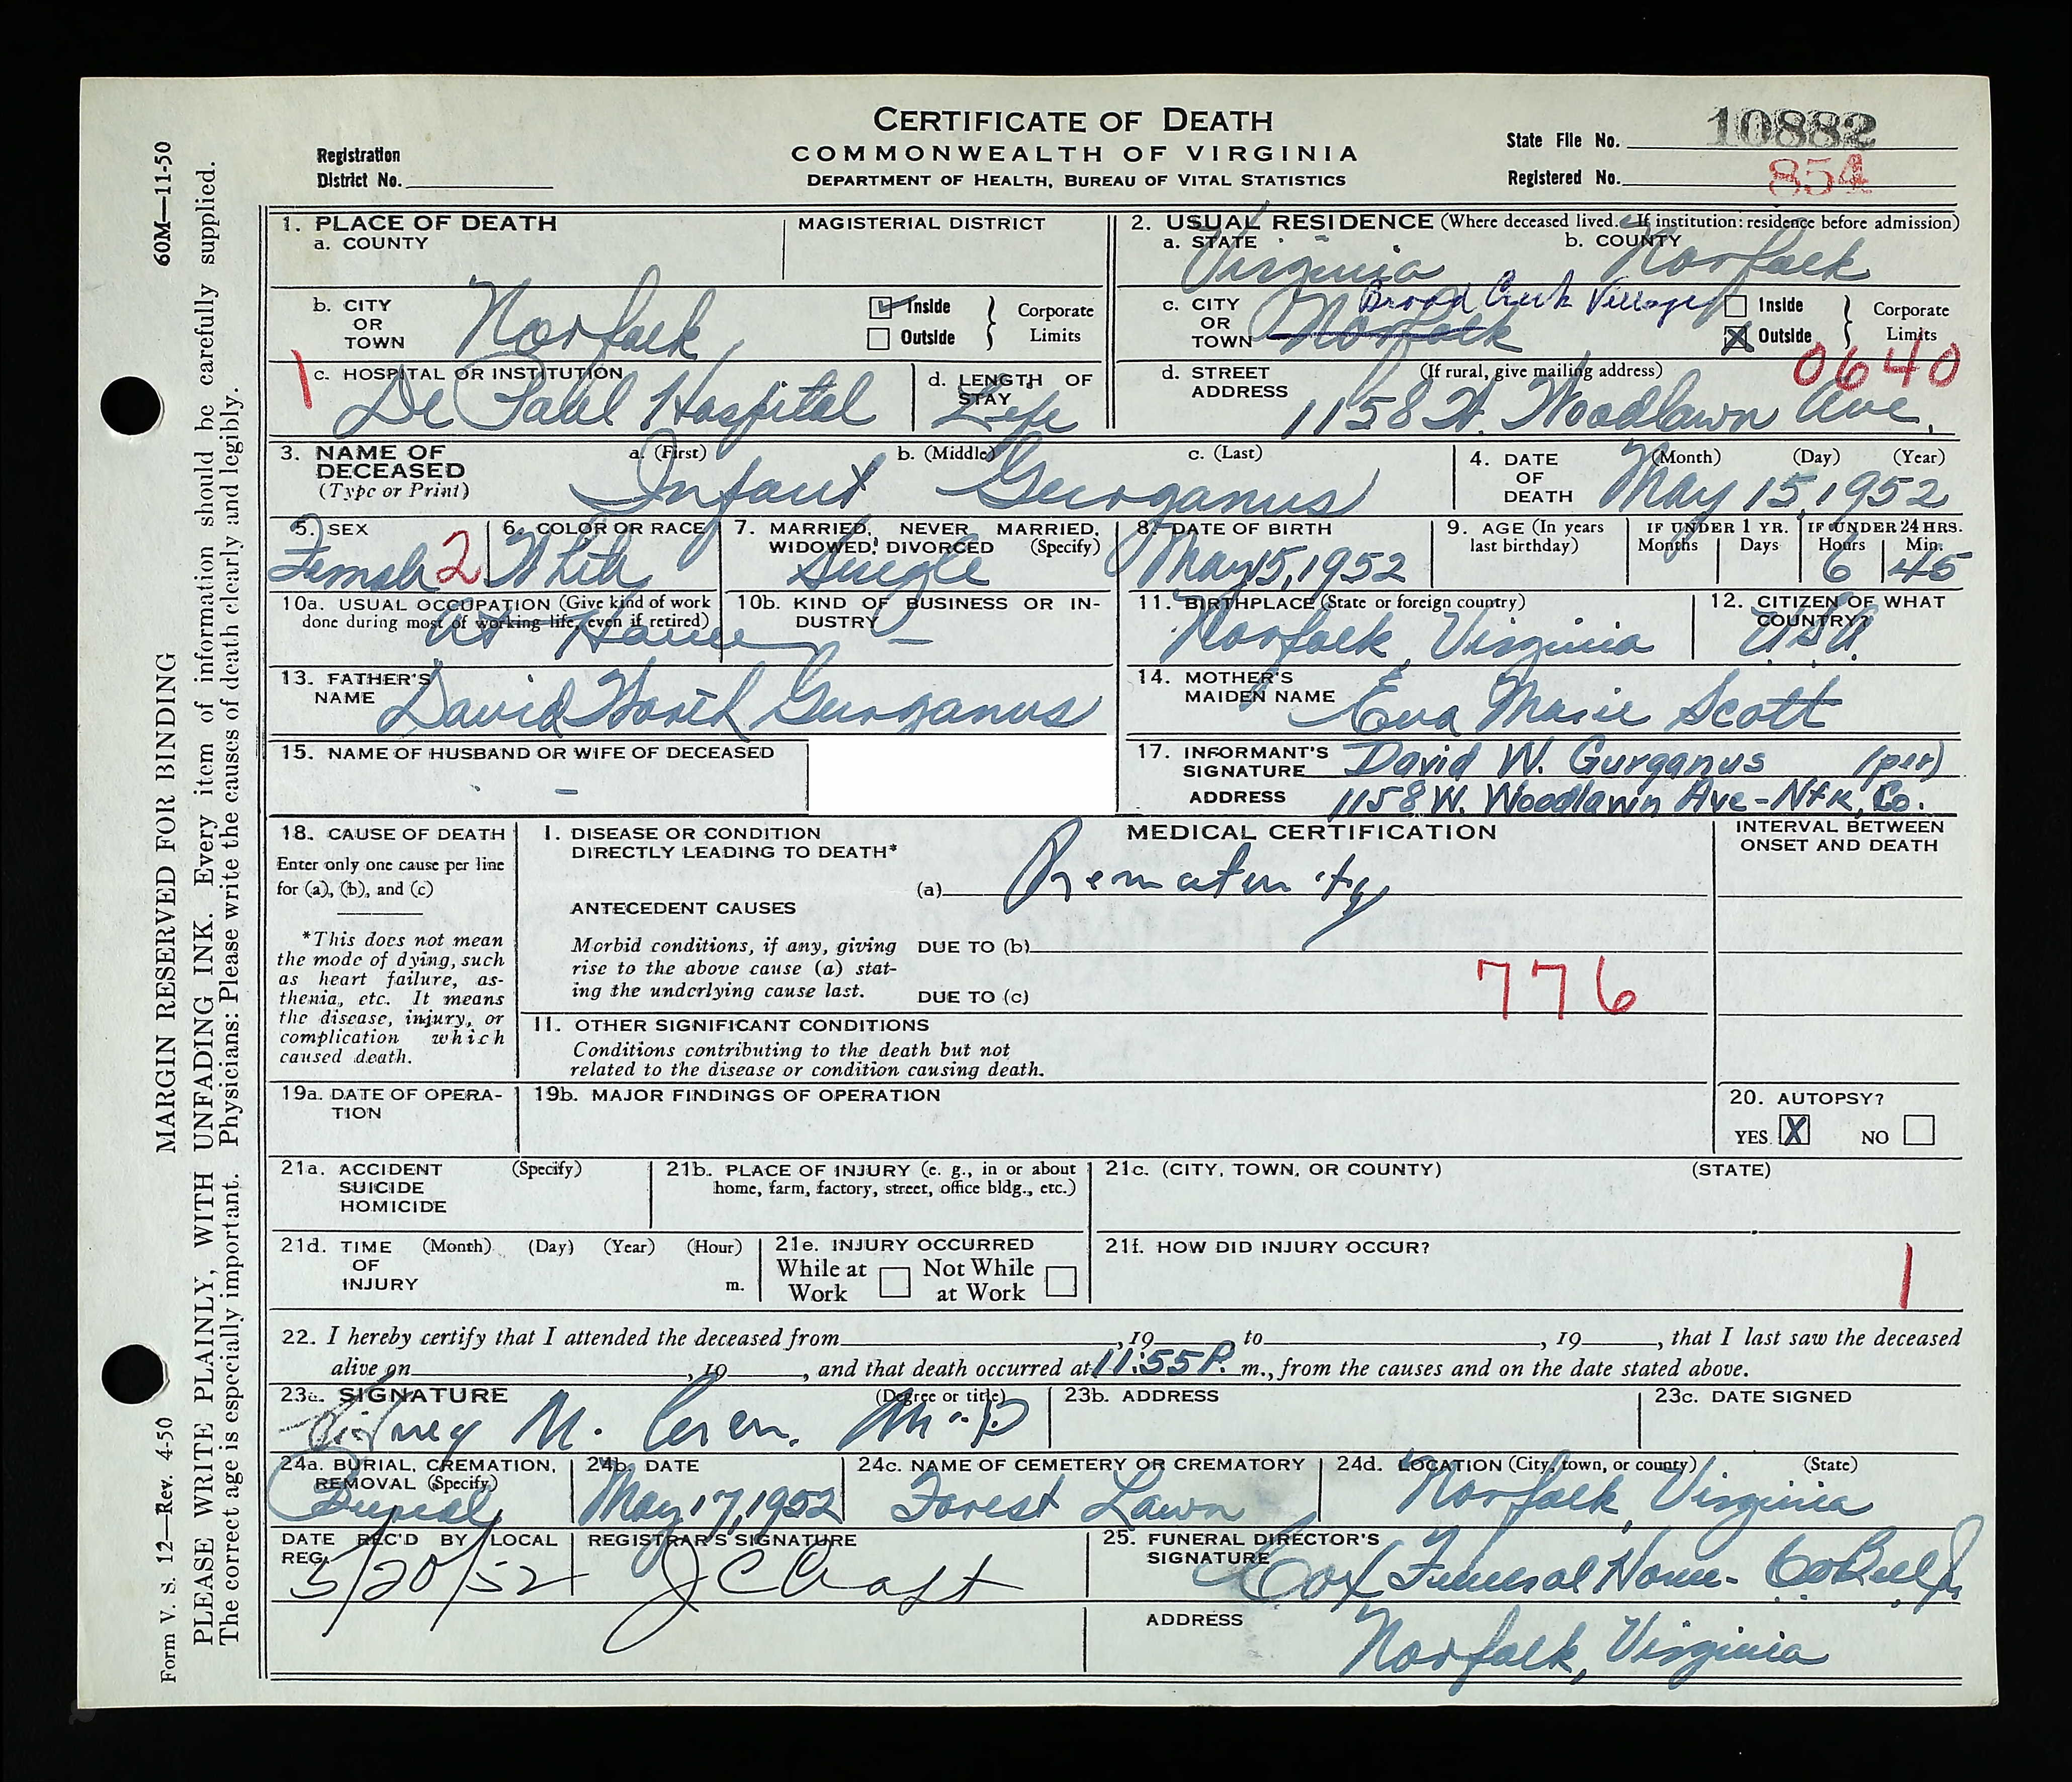 CERTIFICATE OF DEATH
COMMONWEALTH OF VIRGINIA
DEPARTMENT OF HEALTH, BUREAU OF VITAL STATISTICS
Registration
District No.
State File No. 10882
Registered No. 854
1. PLACE OF DEATH
a. COUNTY
MAGISTERIAL DISTRICT
2. USUAL RESIDENCE (Where deceased lived. If institution: residence before admission)
a. STATE Virginia b. COUNTY Norfolk
b. CITY OR TOWN Norfolk
Inside
Outside
Corporate Limits
c. CITY OR TOWN Norfolk Broad Creek Village
Inside
X Outside
Corporate Limits
1
c. HOSPITAL OR INSTITUTION
De Paul Hospital
d. LENGTH OF STAY
Life
d. STREET ADDRESS (If rural, give mailing address)
0640
1158 W. Woodlawn Ave.
3. NAME OF DECEASED
(Type or Print)
a. (First) b. (Middle) c. (Last)
Infant Gurganus
4. DATE OF DEATH (Month) (Day) (Year)
May 15, 1952
5. SEX
Female 2
6. COLOR OR RACE
White
7. MARRIED, NEVER MARRIED, WIDOWED, DIVORCED (Specify)
Single
8. DATE OF BIRTH
May 15, 1952
9. AGE (In years last birthday)
IF UNDER 1 YR.
Months Days
IF UNDER 24 HRS.
Hours Min.
6 45
10a. USUAL OCCUPATION (Give kind of work done during most of working life, even if retired)
At Home
10b. KIND OF BUSINESS OR INDUSTRY
–
11. BIRTHPLACE (State or foreign country)
Norfolk, Virginia
12. CITIZEN OF WHAT COUNTRY?
U.S.A.
13. FATHER'S NAME David Gurganus
14. MOTHER'S MAIDEN NAME Eva Marie Scott
15. NAME OF HUSBAND OR WIFE OF DECEASED
–
17. INFORMANT'S SIGNATURE David W. Gurganus (per)
ADDRESS 1158 W. Woodlawn Ave-Nfk, Co.
18. CAUSE OF DEATH
Enter only one cause per line
for (a), (b), and (c)
*This does not mean
the mode of dying, such
as heart failure, as-
thenia, etc. It means
the disease, injury, or
complication which
caused death.
MEDICAL CERTIFICATION
I. DISEASE OR CONDITION
DIRECTLY LEADING TO DEATH*
(a) Prematurity
ANTECEDENT CAUSES
Morbid conditions, if any, giving
rise to the above cause (a) stat-
ing the underlying cause last.
DUE TO (b)
DUE TO (c)
776
II. OTHER SIGNIFICANT CONDITIONS
Conditions contributing to the death but not
related to the disease or condition causing death.
INTERVAL BETWEEN
ONSET AND DEATH
19a. DATE OF OPERA-
TION
19b. MAJOR FINDINGS OF OPERATION
20. AUTOPSY?
YES X NO
21a. ACCIDENT (Specify)
SUICIDE
HOMICIDE
21b. PLACE OF INJURY (e. g., in or about
home, farm, factory, street, office bldg., etc.)
21c. (CITY, TOWN, OR COUNTY) (STATE)
21d. TIME OF INJURY (Month) (Day) (Year) (Hour)
m.
21e. INJURY OCCURRED
While at Work
Not While at Work
21f. HOW DID INJURY OCCUR?
1
22. I hereby certify that I attended the deceased from , 19 to , 19 , that I last saw the deceased
alive on , 19 , and that death occurred at 11:55 P. m., from the causes and on the date stated above.
23a. SIGNATURE (Degree or title)
Sidney M. M.D
23b. ADDRESS
23c. DATE SIGNED
24a. BURIAL, CREMATION,
REMOVAL (Specify)
Burial
24b. DATE
May 17, 1952
24c. NAME OF CEMETERY OR CREMATORY
Forest Lawn
24d. LOCATION (City, town, or county) (State)
Norfolk, Virginia
DATE REC'D BY LOCAL
REG. 5/20/52
REGISTRAR'S SIGNATURE
25. FUNERAL DIRECTOR'S
SIGNATURE Cox Funeral Home-
ADDRESS
Norfolk, Virginia
60M—11-50
MARGIN RESERVED FOR BINDING
Form V. S. 12—Rev. 4-50
PLEASE WRITE PLAINLY, WITH UNFADING INK. Every item of information should be carefully supplied.
The correct age is especially important. Physicians: Please write the causes of death clearly and legibly.